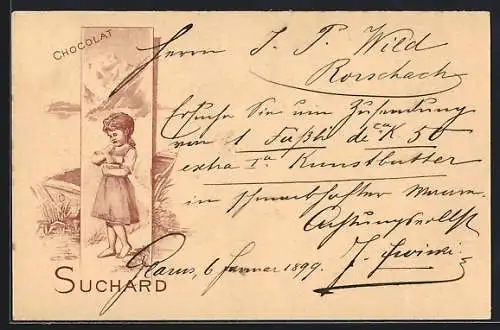 CHOCOLAT
SUCHARD
Herrn J. P. Wild
Rorschach
Ersuche Sie um Zusendung
von 1 Fäßli de ca K 50
extra Ia Kunstbutter
in schmackhafter Waare.
Achtungsvollst
Glarus, 6 Januar 1899. J.